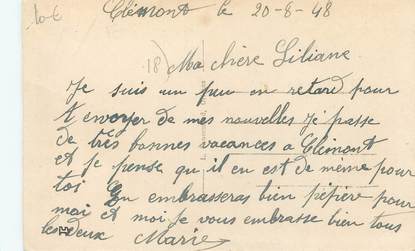 10 €
Clémont le 20-8-48
18) Ma chère Liliane
Je suis un peu en retard pour
t envoyer de mes nouvelles Je passe
de très bonnes vacances a Clémont
et je pense qu il en est de même pour
toi Tu embrasseras bien pépère pour
moi et moi je vous embrasse bien tous
les deux Marie